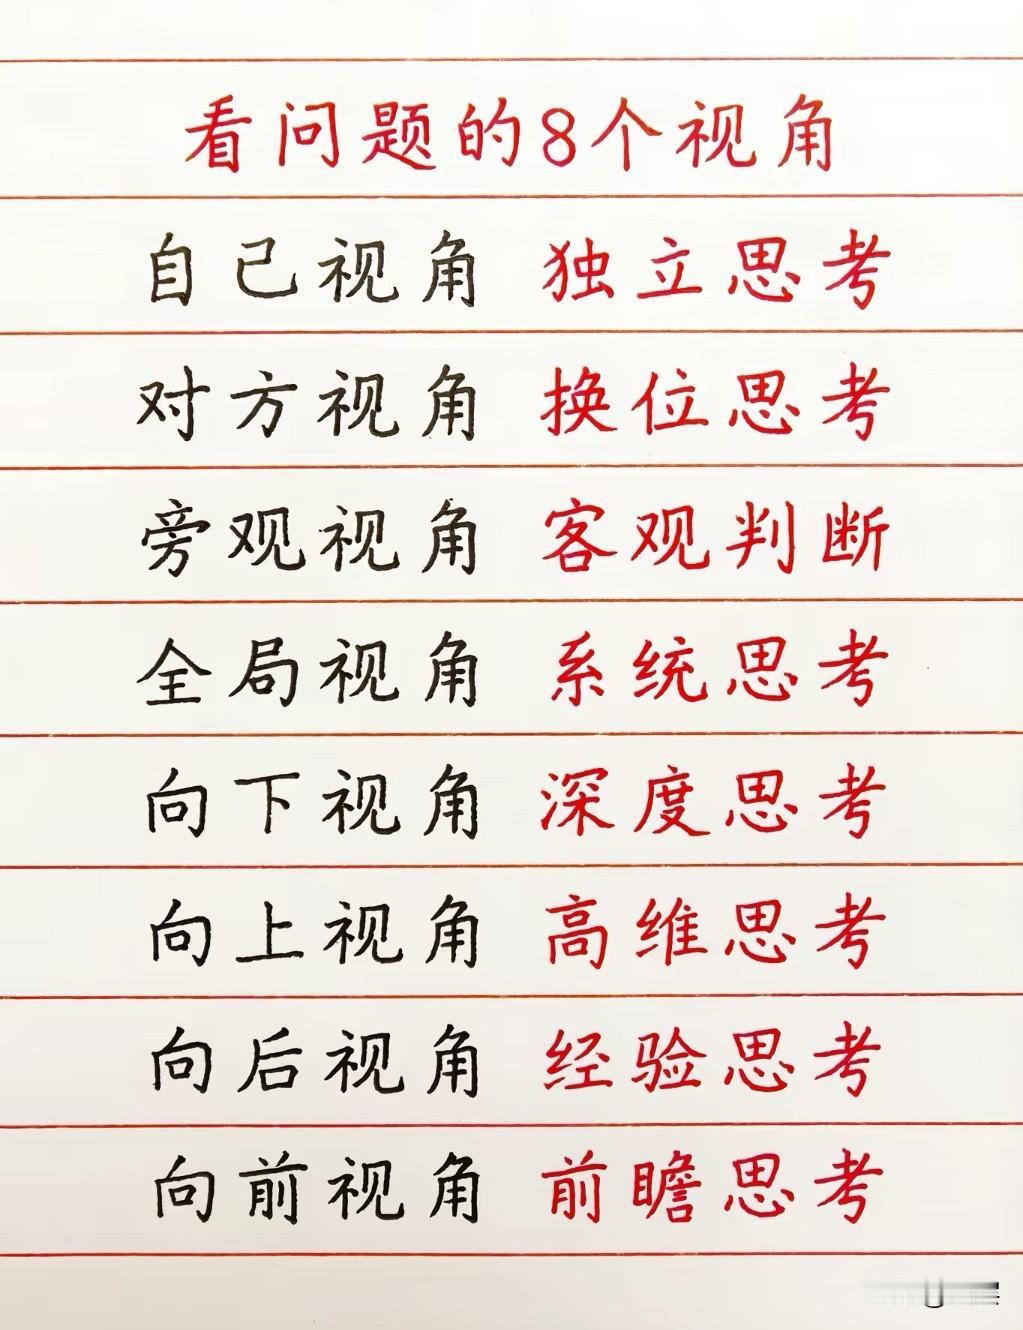 看问题的8个视角
自己视角 独立思考
对方视角 换位思考
旁观视角 客观判断
全局视角 系统思考
向下视角 深度思考
向上视角 高维思考
向后视角 经验思考
向前视角 前瞻思考